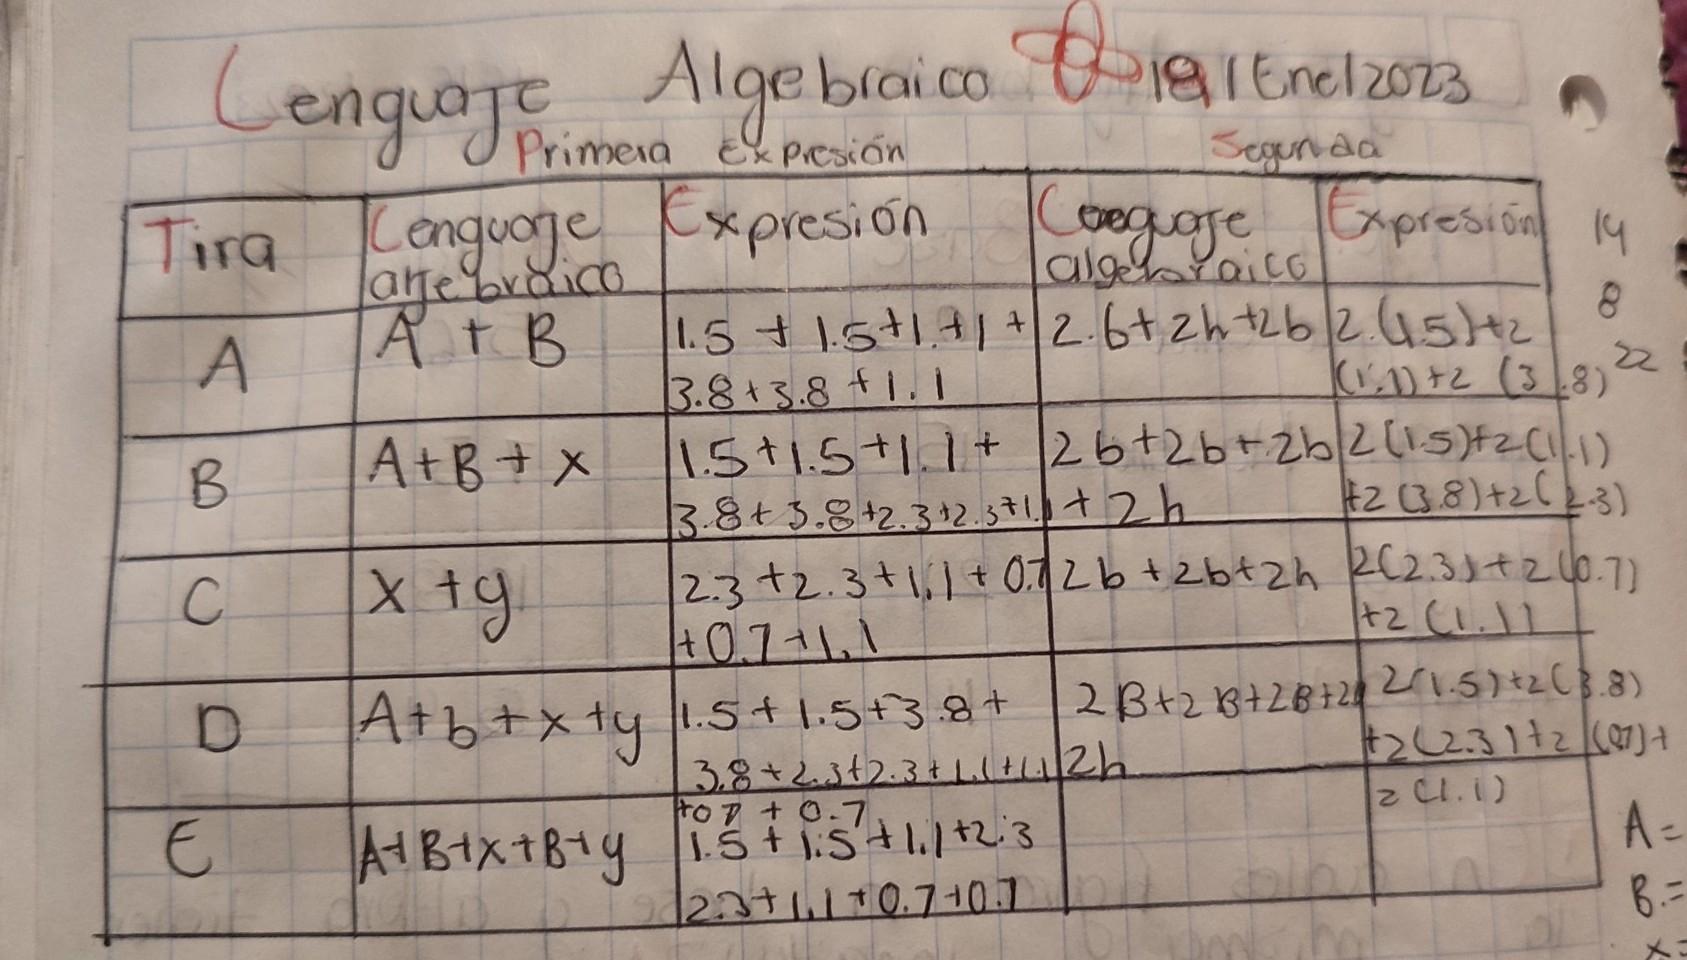 Lenguaje Algebraico 19/Ene/2023
Primera Expresión Segunda
Tira Lenguaje Expresión Lenguaje Expresión
algebraico algebraico
14
8
22
A A + B 1.5 + 1.5+1.+1+ 2.b+2h+2b 2.(1.5)+2
3.8+3.8+1.1 (1.1)+2 (3.8)
B A+B+x 1.5+1.5+1.1+ 2b+2b+2b 2(1.5)+2(1.1)
3.8+3.8+2.3+2.3+1.1 +2h +2(3.8)+2(2.3)
C x+y 2.3+2.3+1.1+0.7 2b+2b+2h 2(2.3)+2(0.7)
+0.7+1.1 +2(1.1)
D A+b+x+y 1.5+1.5+3.8+ 2B+2B+2B+2 2(1.5)+2(3.8)
3.8+2.3+2.3+1.1+1.1 2h +2(2.3)+2(0.7)+
+0.7+0.7 2(1.1)
E A+B+x+B+y 1.5+1.5+1.1+2.3
2.3+1.1+0.7+0.7
A=
B.=
x=